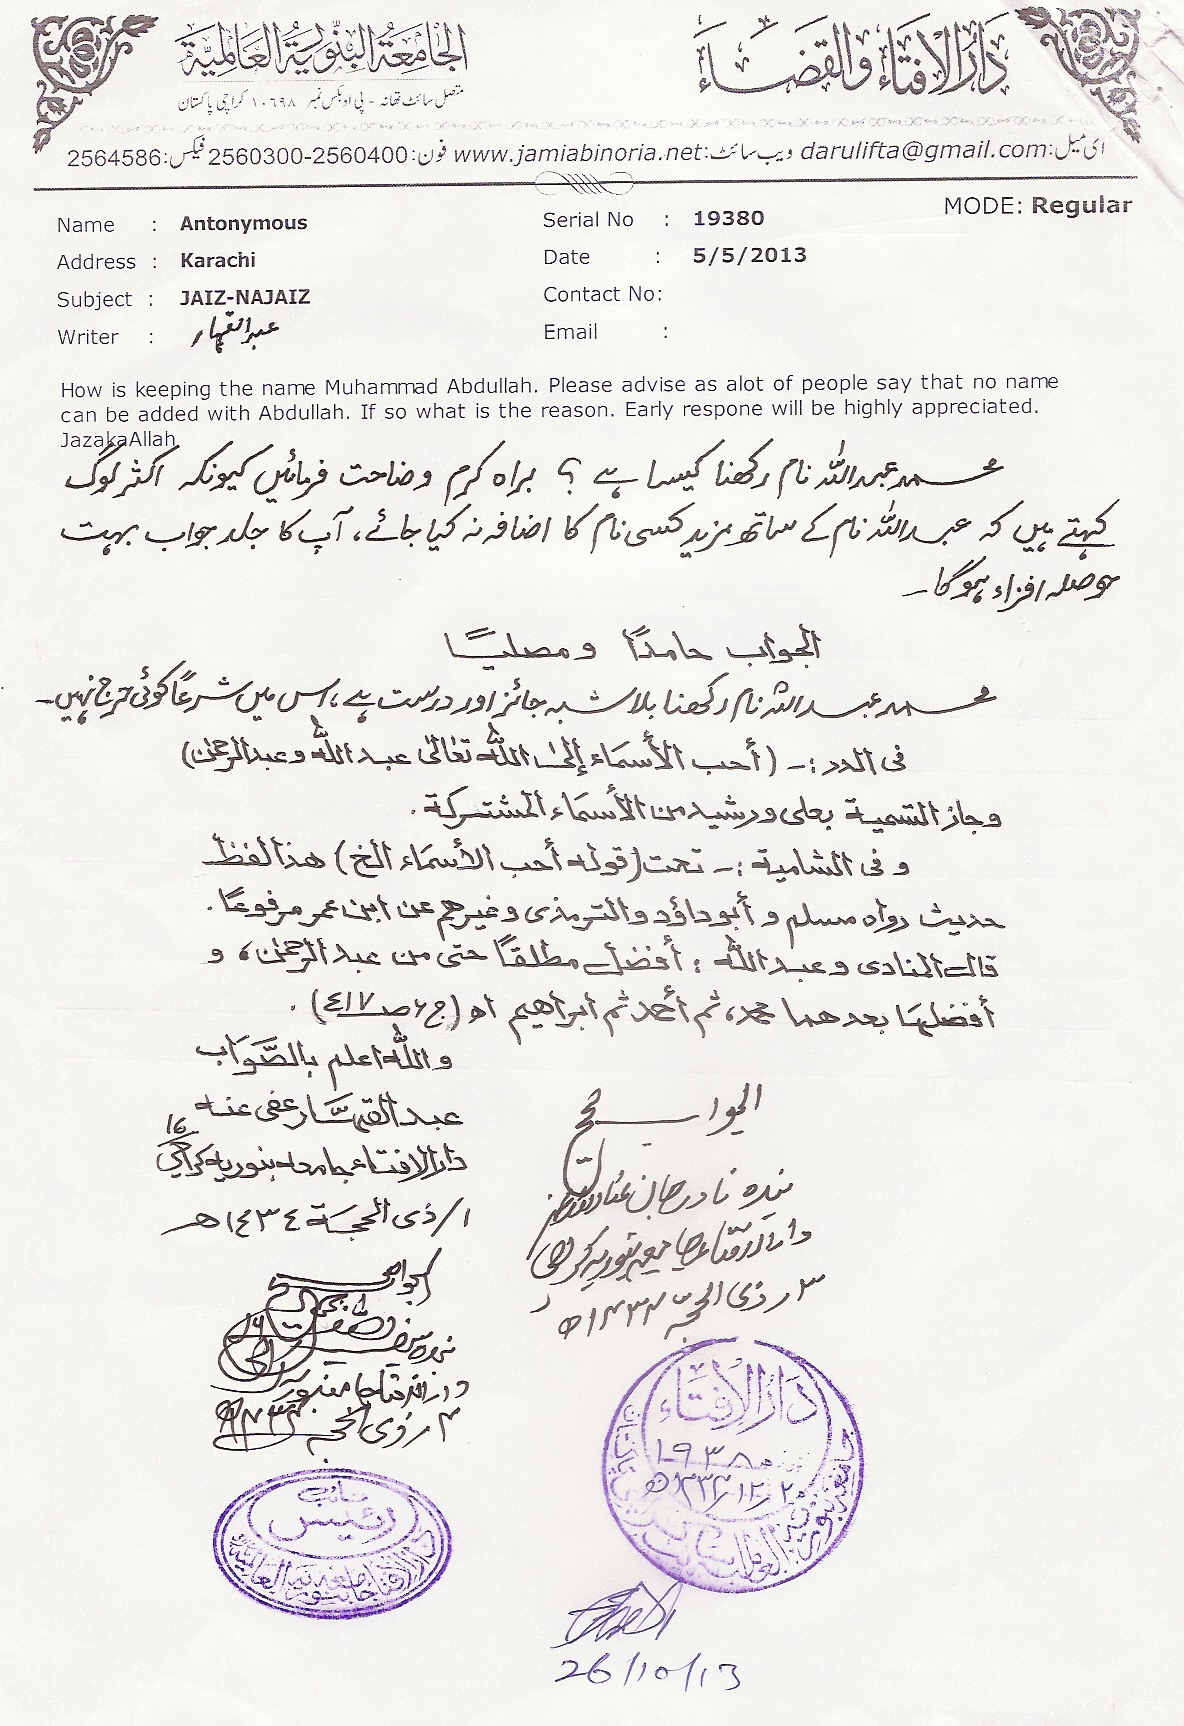 الجامعة البنورية العالمية
دار الإفتاء والقضاء
متصل سائٹ تھانہ - پی او بکس نمبر ۱۰۶۹۸ کراچی پاکستان
ای میل:darulifta@gmail.com ویب سائٹ:www.jamiabinoria.net فون:2560300-2560400 فیکس:2564586
MODE: Regular
Name : Antonymous
Serial No : 19380
Address : Karachi
Date : 5/5/2013
Subject : JAIZ-NAJAIZ
Contact No:
Writer : عبدالقہار
Email :
How is keeping the name Muhammad Abdullah. Please advise as alot of people say that no name
can be added with Abdullah. If so what is the reason. Early respone will be highly appreciated.
JazakaAllah
محمد عبداللہ نام رکھنا کیسا ہے ؟ براہ کرم وضاحت فرمائیں کیونکہ اکثر لوگ
کہتے ہیں کہ عبداللہ نام کے ساتھ مزید کسی نام کا اضافہ نہ کیا جائے، آپ کا جلد جواب بہت
حوصلہ افزاء ہوگا۔
الجواب حامدًا و مصلیًا
محمد عبداللہ نام رکھنا بلاشبہ جائز اور درست ہے، اس میں شرعًا کوئی حرج نہیں۔
فی الدر :۔ (أحب الأسماء إلى الله تعالى عبد الله وعبد الرحمٰن)
وجاز التسمية بعلي ورشيد من الأسماء المشتركة .
و فی الشامية :۔ تحت (قوله أحب الأسماء الخ) هذا لفظ
حديث رواه مسلم و أبو داؤد والترمذی وغيرهم عن ابن عمر مرفوعًا .
قال المنادی و عبد الله : أفضل مطلقًا حتى من عبد الرحمٰن ، و
أفضلها بعدهما محمد، ثم أحمد ثم ابراهيم اھ (ج ۶ ص ٤١٧) .
والله اعلم بالصَّوَاب
عبد القهَّار عفی عنه
دار الافتاء جامعه بنوریه کراچی 16
۱/ذی الحجة ١٤٣٤ھ
الجواب صحیح
بندہ نادر جان
دار الافتاء جامعہ بنوریہ کراچی
۳/ذی الحجہ ۱۴۳۴ھ
الجواب صحیح
دار الافتاء جامعہ بنوریہ
۳/ذی الحجہ ۱۴۳۴ھ
دار الإفتاء
۱۹۳۸۰
رئیس
دار الافتاء جامعہ بنوریہ العالمیہ
26/10/13